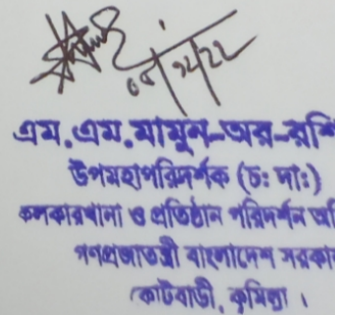 ০৮/১২/২২
এম.এম.মামুন-অর-রশি
উপমহাপরিদর্শক (চ: দা:)
কলকারখানা ও প্রতিষ্ঠান পরিদর্শন অধি
গণপ্রজাতন্ত্রী বাংলাদেশ সরকার
কোটবাড়ী, কুমিল্লা ।